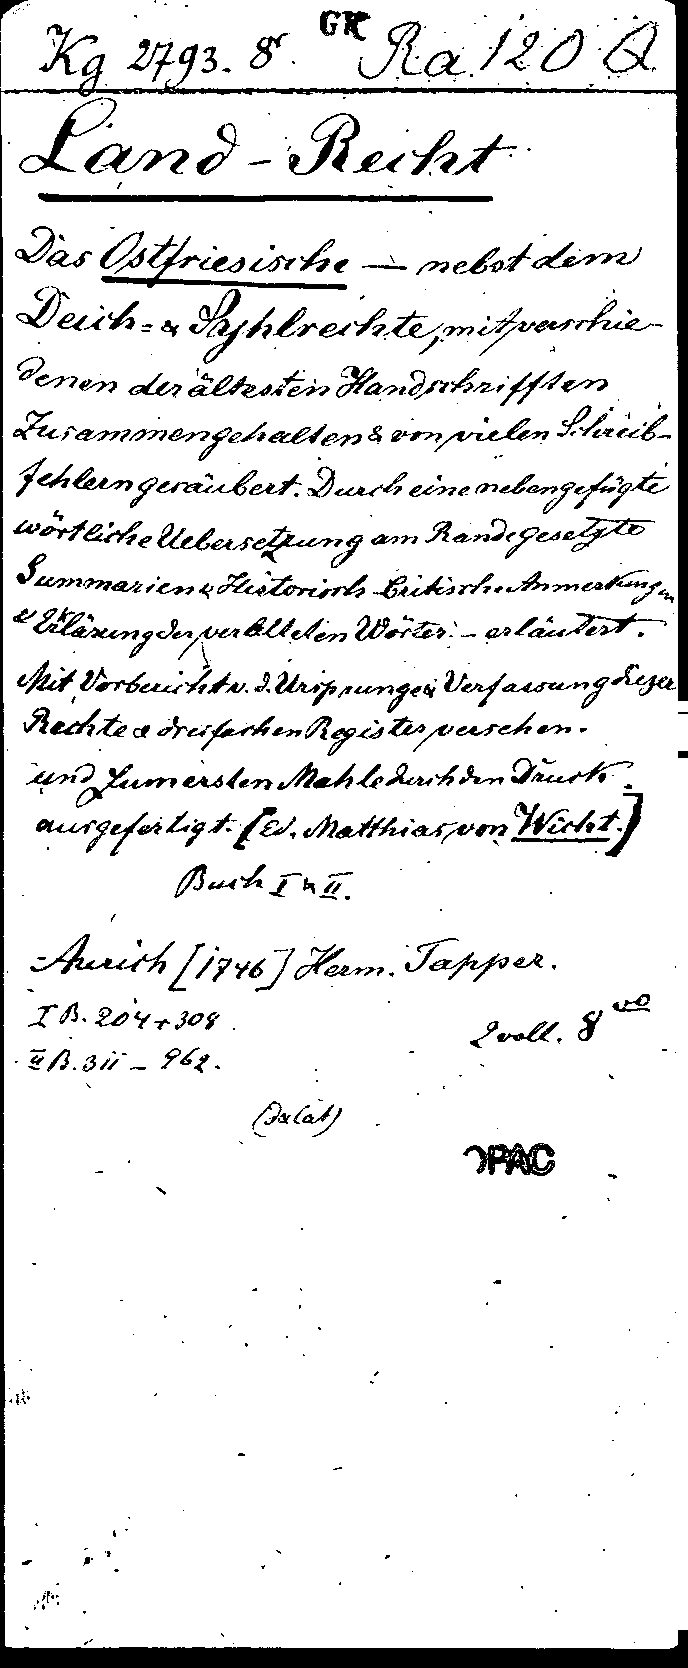 Kg 2793. 8° GK Ra 120 Q
Land-Recht
Das Ostfriesische — nebst dem
Deich= & Syhlrechte, mit verschie-
denen der ältesten Handschrifften
Zusammengehalten & von vielen Schreib-
fehlern gesäubert. Durch eine nebengefügte
wörtliche Uebersetzung am Rande gesetzte
Summarien & Historisch Critische Anmerkungen
& Erklärung der veralteten Wörter — erläutert.
Mit Vorbericht v. d. Ursprunge & Verfassung dieser
Rechte & dreifachen Register versehen.
und Zum ersten Mahle durch den Druck
ausgefertigt. [Ed. Matthias von Wicht.]
Buch I & II.
Aurich [1746] Herm. Tapper.
I B. 204 + 308
2 voll. 8vo
II B. 311 — 962.
OPAC